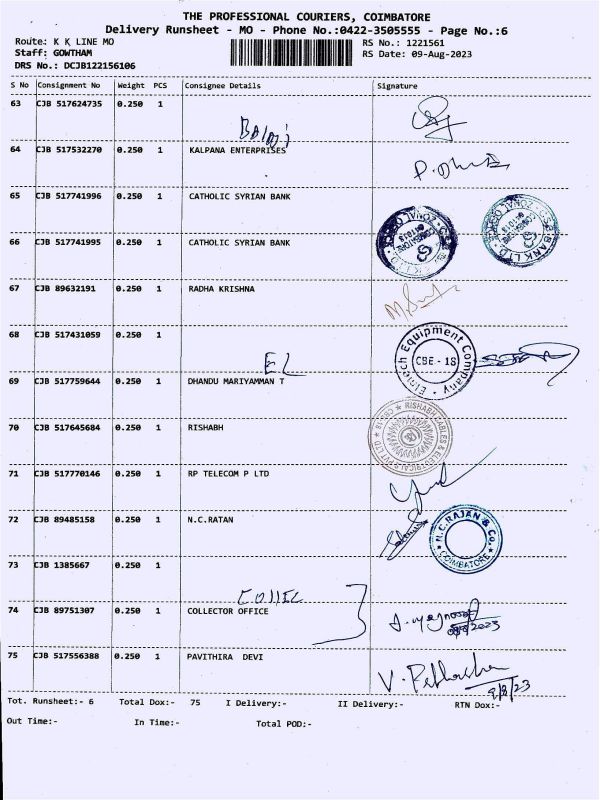 THE PROFESSIONAL COURIERS, COIMBATORE
Delivery Runsheet - MO - Phone No.:0422-3505555 - Page No.:6
Route: K K LINE MO RS No.: 1221561
Staff: GOWTHAM RS Date: 09-Aug-2023
DRS No.: DCJB122156106
S No Consignment No Weight PCS Consignee Details Signature
63 CJB 517624735 0.250 1
Balaji
64 CJB 517532270 0.250 1 KALPANA ENTERPRISES
65 CJB 517741996 0.250 1 CATHOLIC SYRIAN BANK
66 CJB 517741995 0.250 1 CATHOLIC SYRIAN BANK
67 CJB 89632191 0.250 1 RADHA KRISHNA
68 CJB 517431059 0.250 1
Elmech Equipment Company
CBE - 18
EL
69 CJB 517759644 0.250 1 DHANDU MARIYAMMAN T
70 CJB 517645684 0.250 1 RISHABH
RISHABH CABLES & ELECTRICALS PVT LTD
71 CJB 517770146 0.250 1 RP TELECOM P LTD
72 CJB 89485158 0.250 1 N.C.RATAN
N.C.RAJAN & Co.
COIMBATORE
73 CJB 1385667 0.250 1
74 CJB 89751307 0.250 1 COLLECTOR OFFICE
75 CJB 517556388 0.250 1 PAVITHIRA DEVI
9/8/23
Tot. Runsheet:- 6 Total Dox:- 75 I Delivery:- II Delivery:- RTN Dox:-
Out Time:- In Time:- Total POD:-